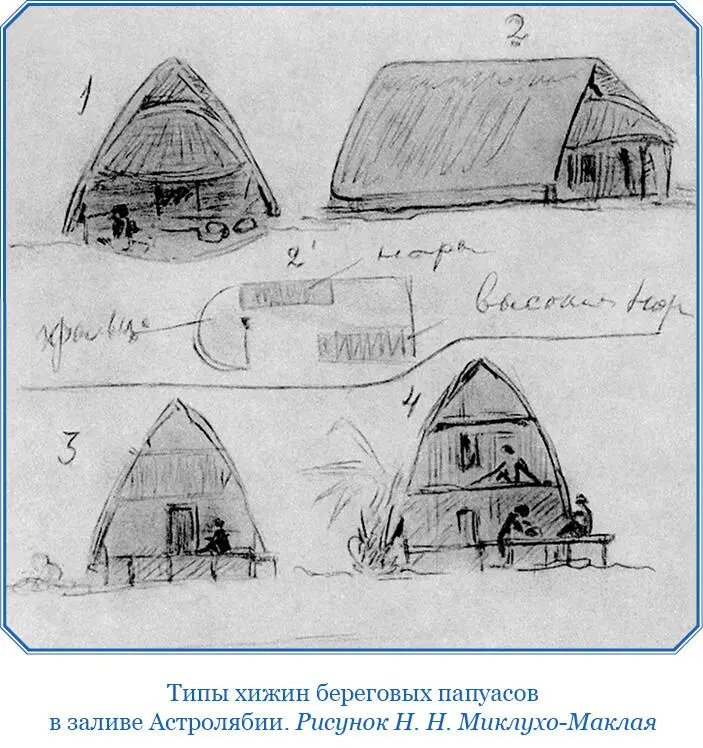 1
2
2'
нары
крыльцо
высокие нар
3
4
Типы хижин береговых папуасов
в заливе Астролябии. Рисунок Н. Н. Миклухо-Маклая